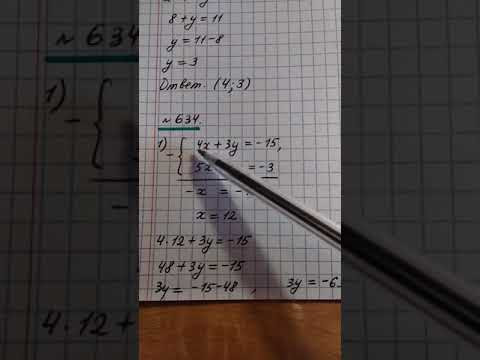 8 + y = 11
y = 11 - 8
y = 3
Ответ. (4; 3)
№ 634.
1) - { 4x + 3y = -15,
5x = -3
-x = -
x = 12
4·12 + 3y = -15
48 + 3y = -15
3y = -15 - 48 , 3y = -6
№ 634
1) - {
4·12 + 3